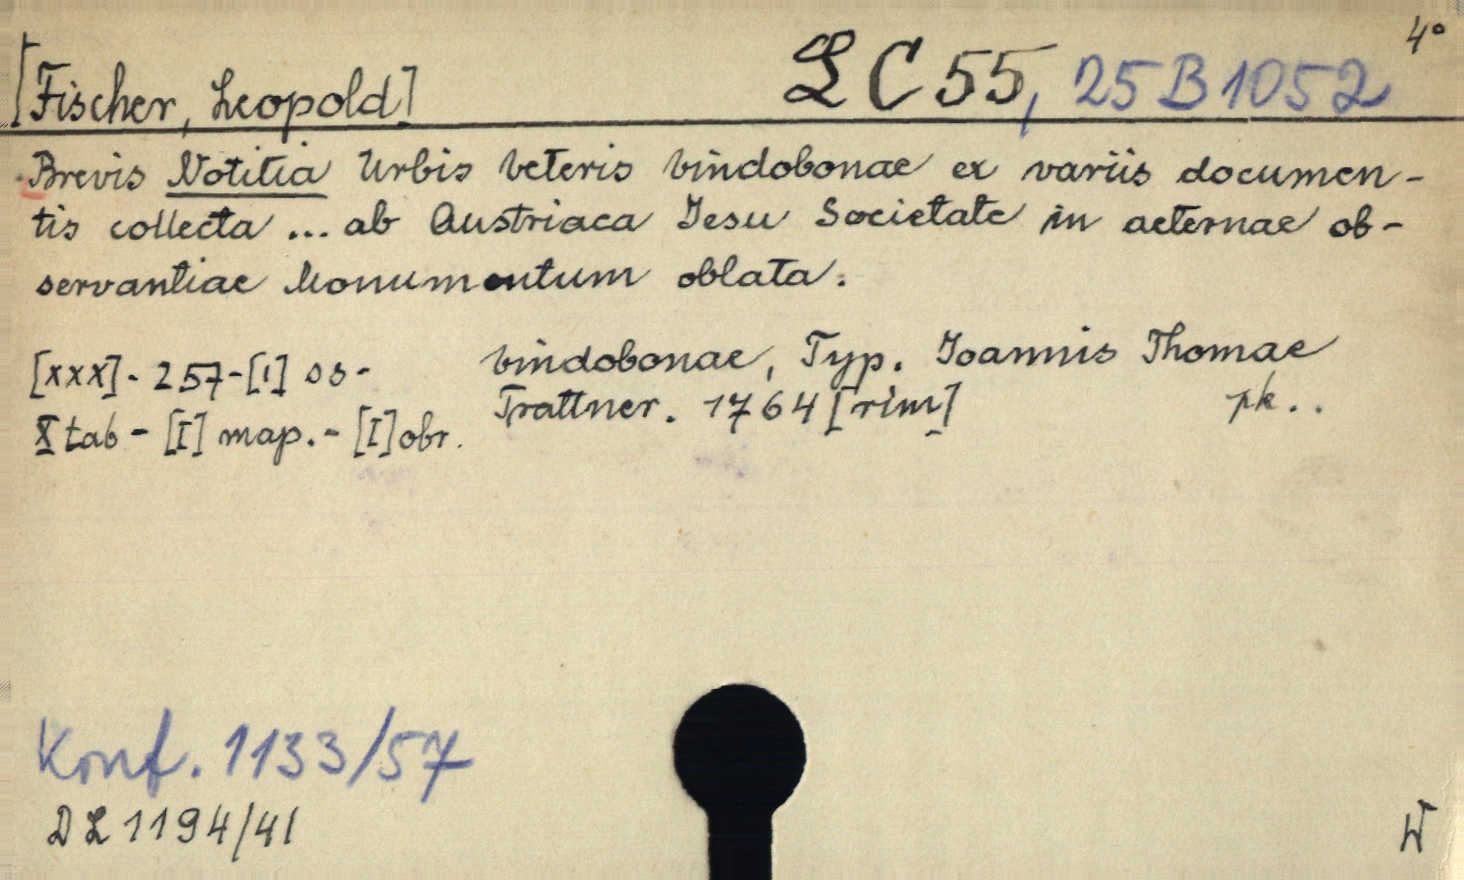 4°
[Fischer, Leopold] LC 55, 25 B 1052
Brevis Notitia Urbis veteris vindobonae ex variis documen-
tis collecta ... ab Austriaca Jesu Societate in aeternae ob-
servantiae Monumentum oblata.
[xxx]-257-[1] ss- vindobonae, Typ. Joannis Thomae
X tab - [I] map.- [I] obr. Trattner. 1764 [rim] pk..
Konf. 1133/57
DL 1194/41
W